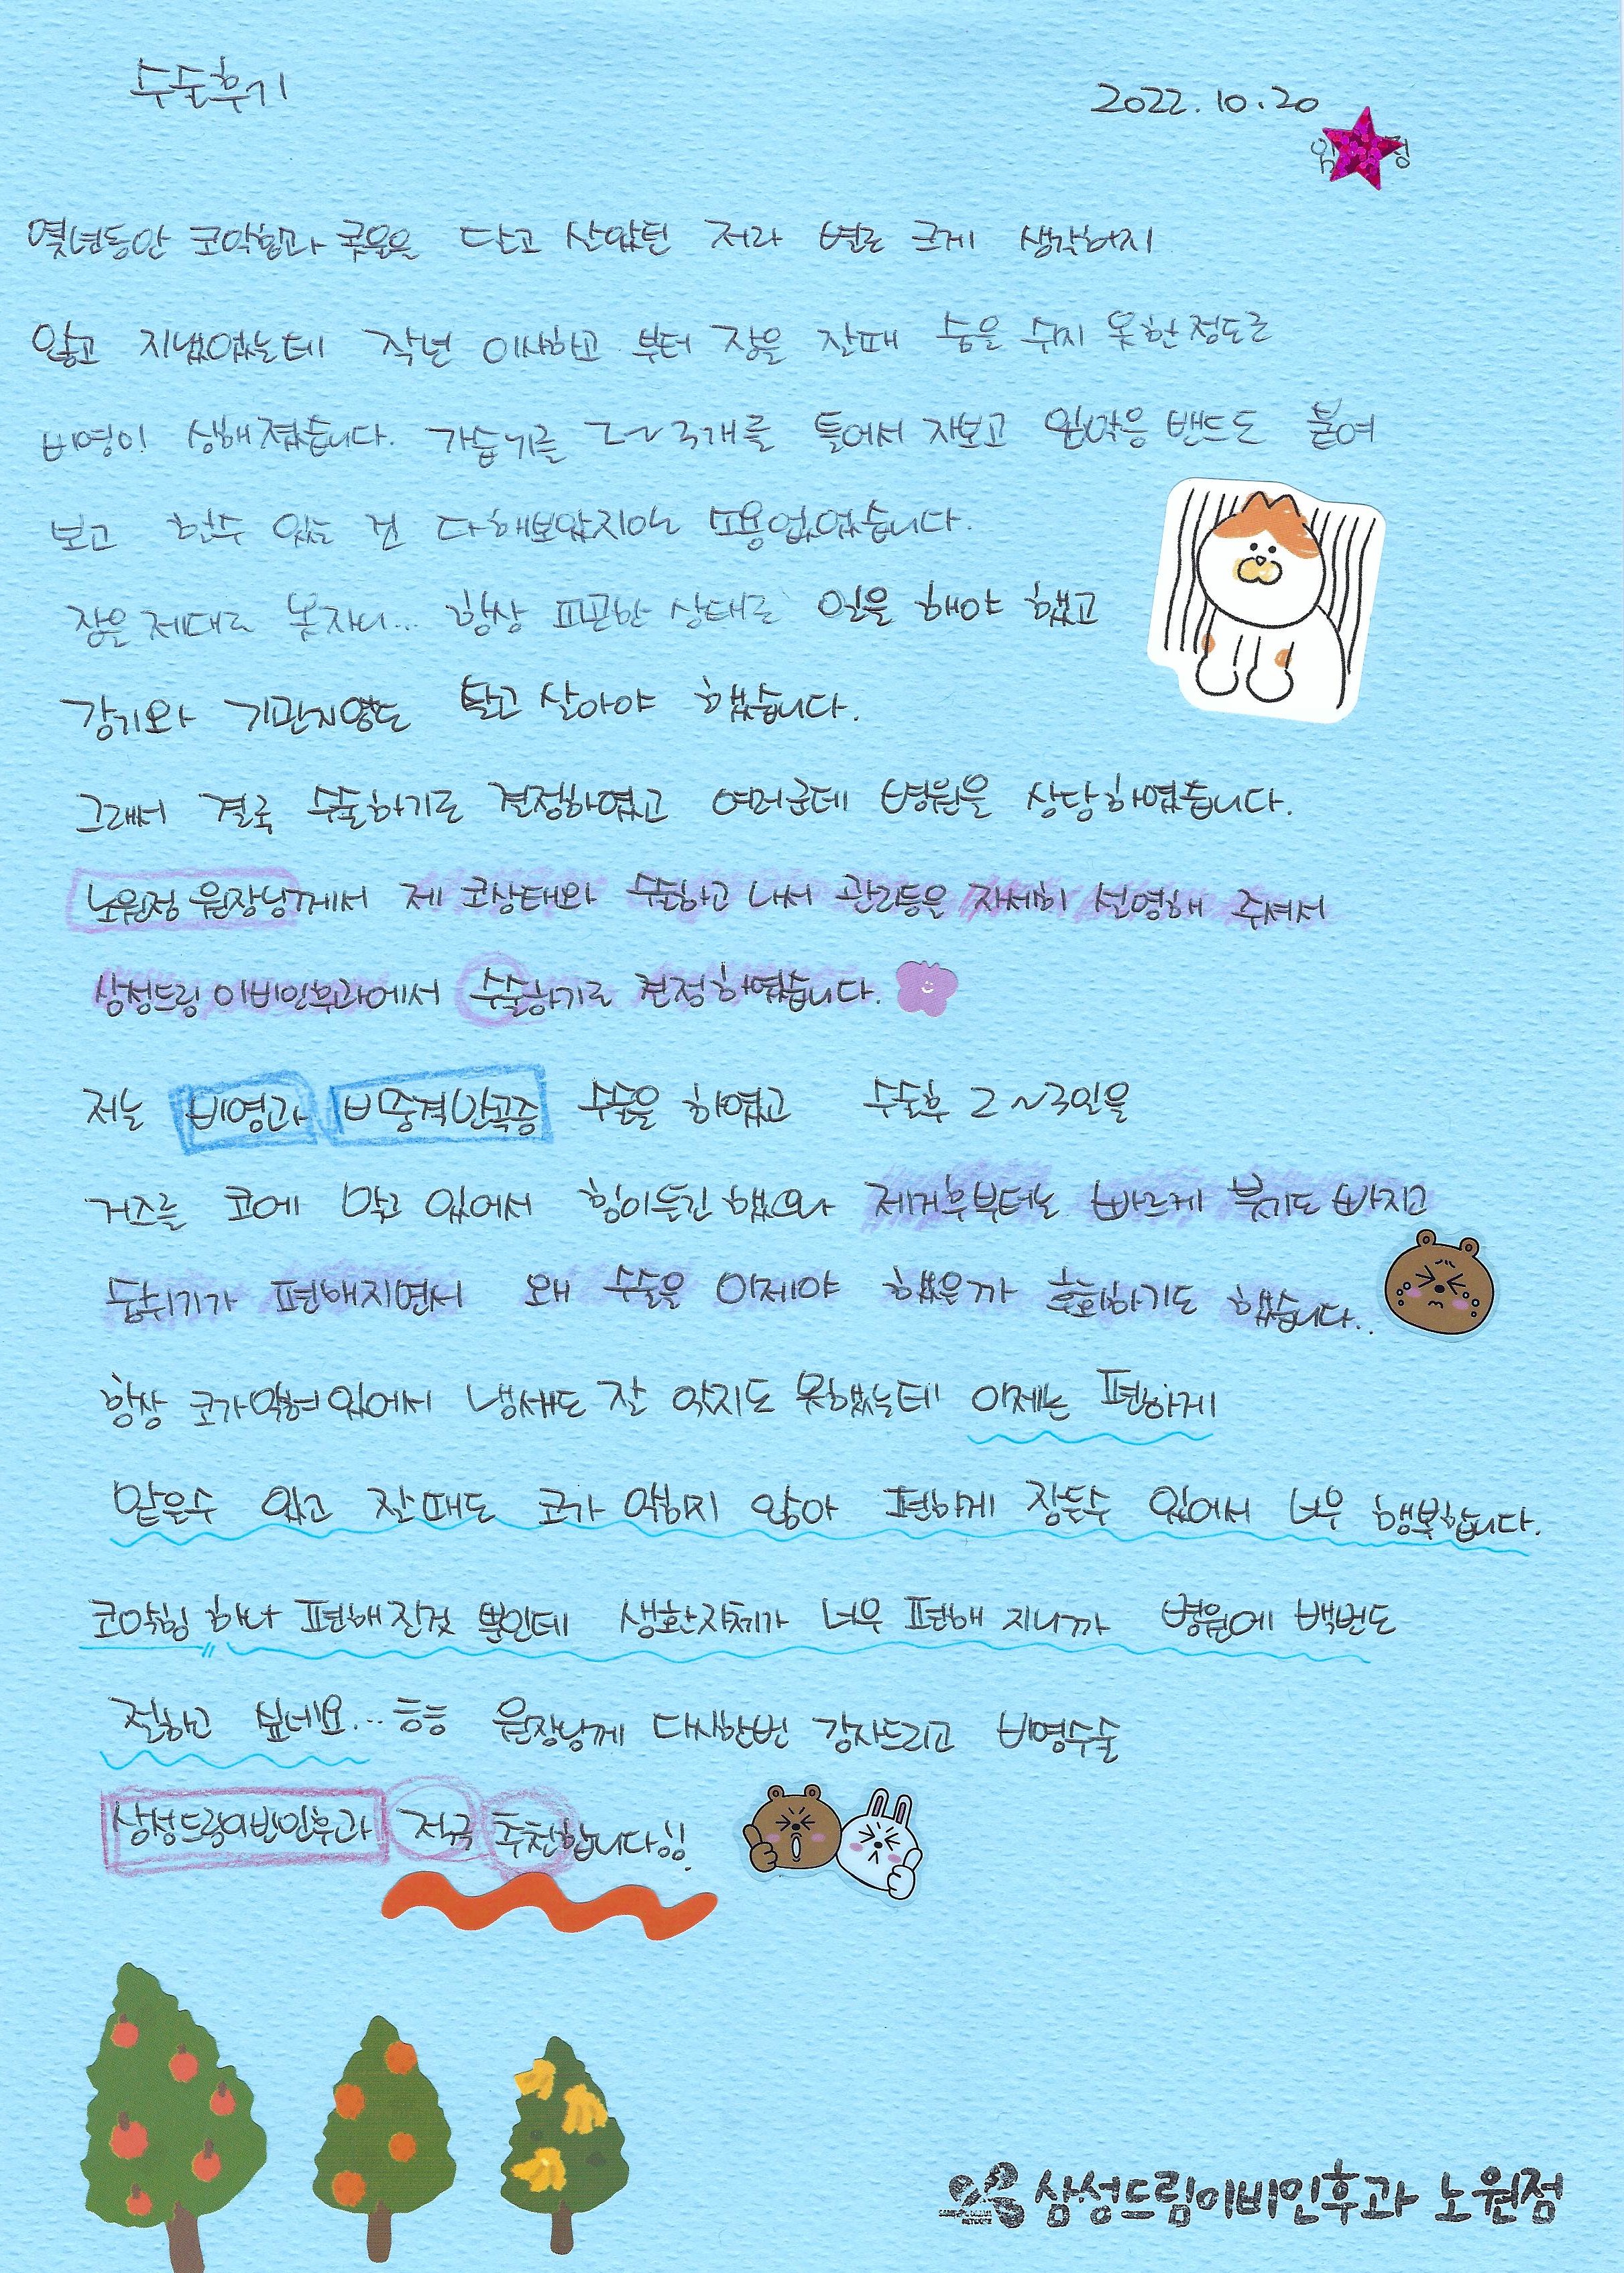 수술후기
2022.10.20
몇년동안 코막힘과 콧물을 달고 살았던 저라 별로 크게 생각하지
않고 지냈었는데 작년 이사하고 부터 잠을 잘때 숨을 쉬지 못한정도로
비염이 심해졌습니다. 가습기를 2~3개를 틀어서 자보고 입막음 밴드도 붙여
보고 할수 있는 건 다해보았지만 소용없었습니다.
잠을 제대로 못자니... 항상 피곤한 상태로 일을 해야 했고
감기와 기관지염도 달고 살아야 했습니다.
그래서 결국 수술하기로 결정하였고 여러군데 병원을 상담하였습니다.
노원점 원장님께서 제 코상태와 수술하고 나서 관리등을 자세히 설명해 주셔서
삼성드림 이비인후과에서 수술하기로 결정하였습니다.
저는 비염과 비중격만곡증 수술을 하였고 수술후 2~3일을
거즈를 코에 막고 있어서 힘이들긴 했으나 제거후부터는 빠르게 붓기도 빠지고
숨쉬기가 편해지면서 왜 수술을 이제야 했을까 후회하기도 했습니다..
항상 코가막혀있어서 냄새도 잘 맡지도 못했는데 이제는 편하게
맡을수 있고 잘때도 코가 막히지 않아 편하게 잠들수 있어서 너무 행복합니다.
코막힘 하나 편해진것 뿐인데 생활자체가 너무 편해 지니까 병원에 백번도
절하고 싶네요... ㅎㅎ 원장님께 다시한번 감사드리고 비염수술
삼성드림이비인후과 적극 추천합니다!!
삼성드림이비인후과 노원점